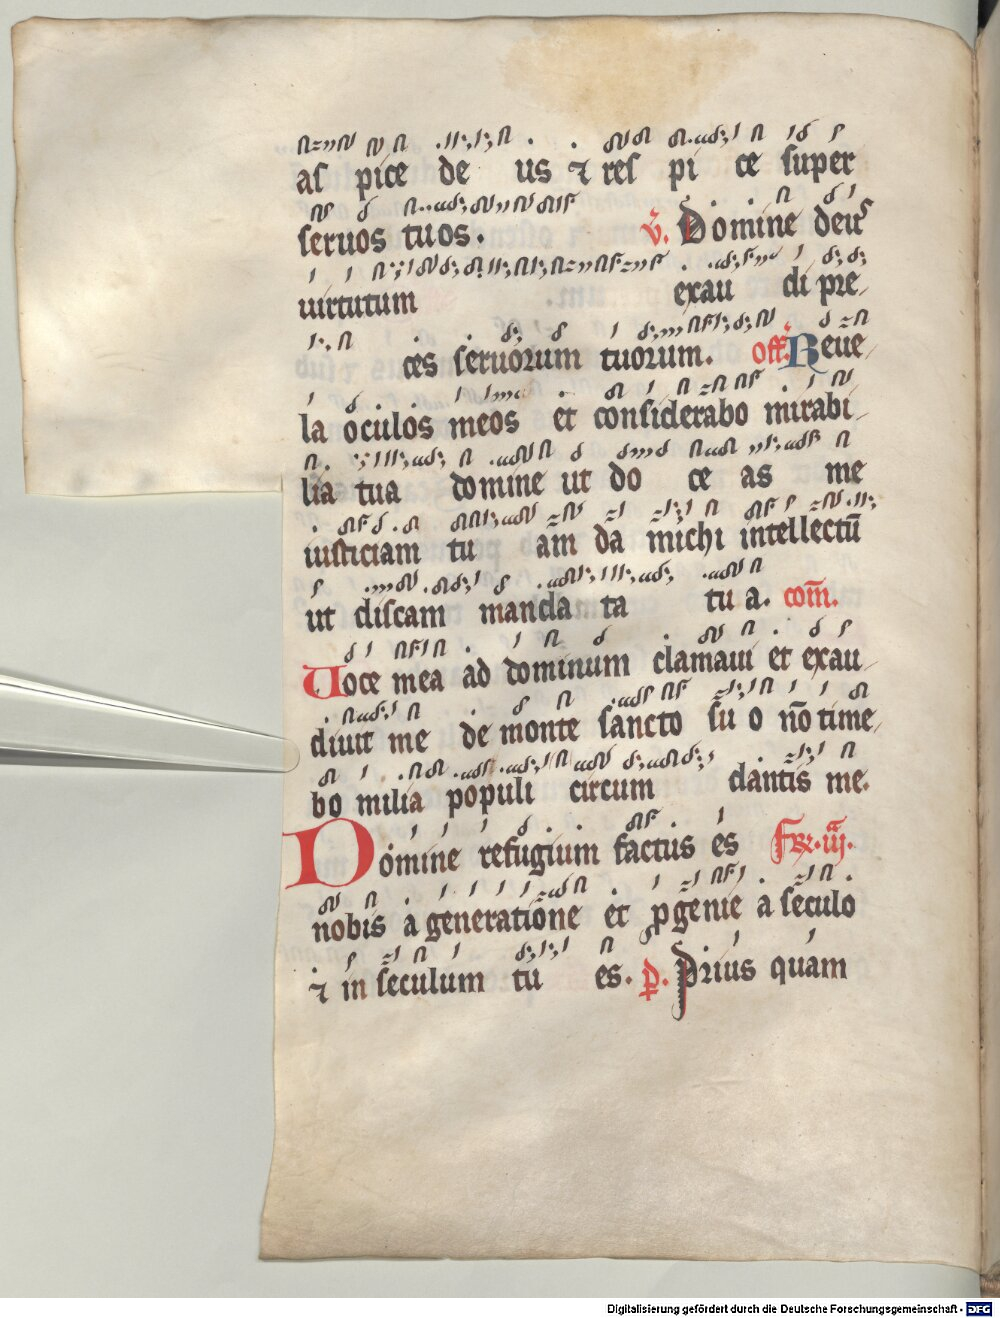 as pice de us ⁊ res pi ce super
seruos tuos. v. Domine deus
uirtutum exau di pre
ces seruorum tuorum. off. Reue
la oculos meos et considerabo mirabi
lia tua domine ut do ce as me
iusticiam tu am da michi intellectū
ut discam manda ta tu a. com̄.
Uoce mea ad dominum clamaui et exau
diuit me de monte sancto su o nō time
bo milia populi circum dantis me.
Domine refugium factus es
nobis a generatione et ꝓgenie a seculo
⁊ in seculum tu es. p. Prius quam
Digitalisierung gefördert durch die Deutsche Forschungsgemeinschaft - DFG